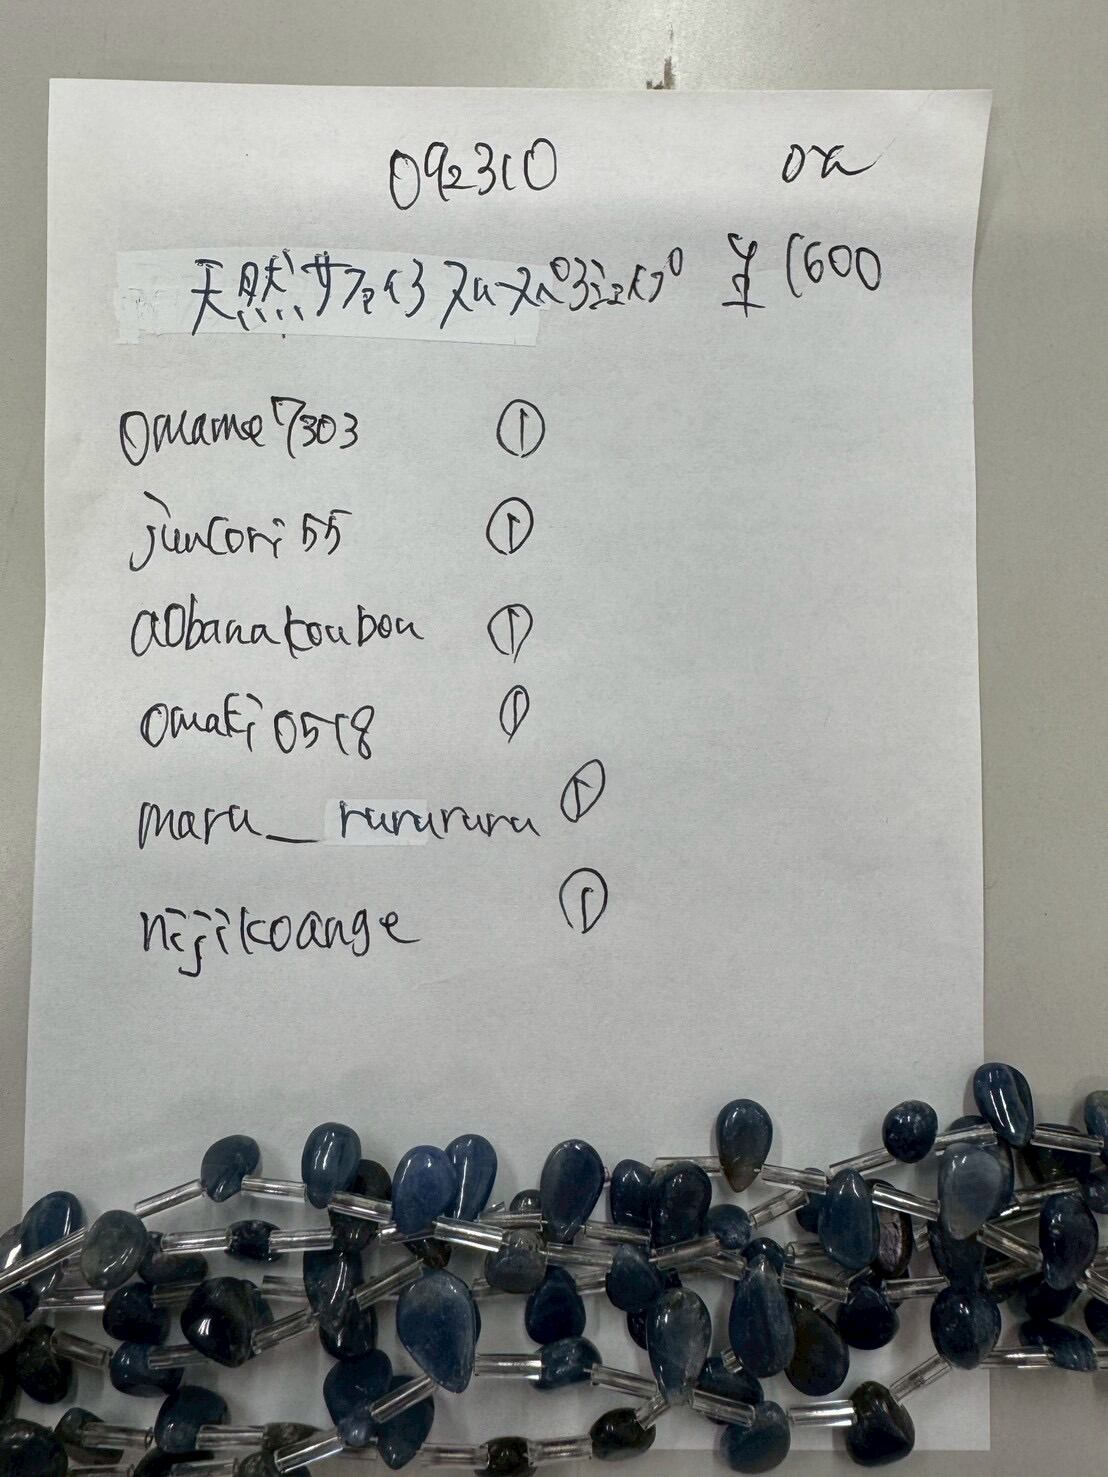 092310 ox
天然サファイヤ スムースペア3連セット ¥1600
omame7303 ①
juncori55 ①
aobanakoubou ①
omaki0518 ①
maru_rurururu ①
nijikoange ①